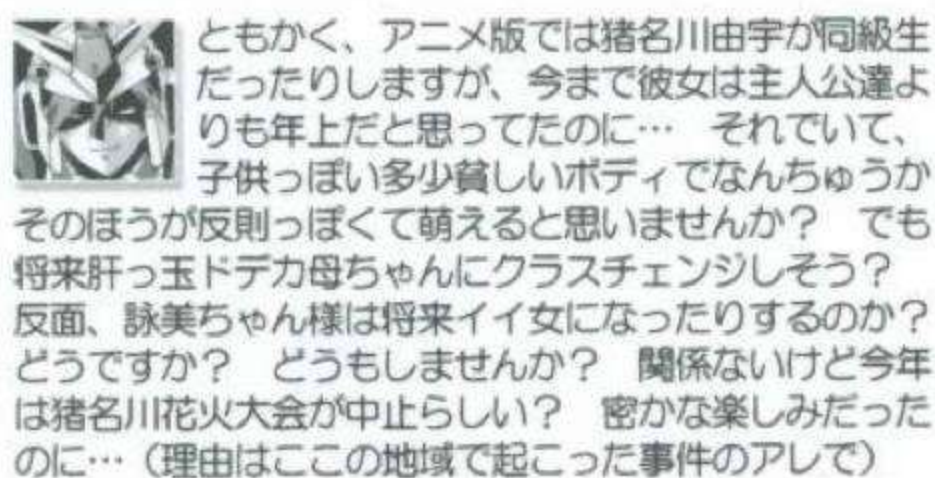 ともかく、アニメ版では猪名川由宇が同級生
だったりしますが、今まで彼女は主人公達よ
りも年上だと思ってたのに… それでいて、
子供っぽい多少貧しいボディでなんちゅうか
そのほうが反則っぽくて萌えると思いませんか? でも
将来肝っ玉ドデカ母ちゃんにクラスチェンジしそう?
反面、詠美ちゃん様は将来イイ女になったりするのか?
どうですか? どうもしませんか? 関係ないけど今年
は猪名川花火大会が中止らしい? 密かな楽しみだった
のに…(理由はここの地域で起こった事件のアレで)